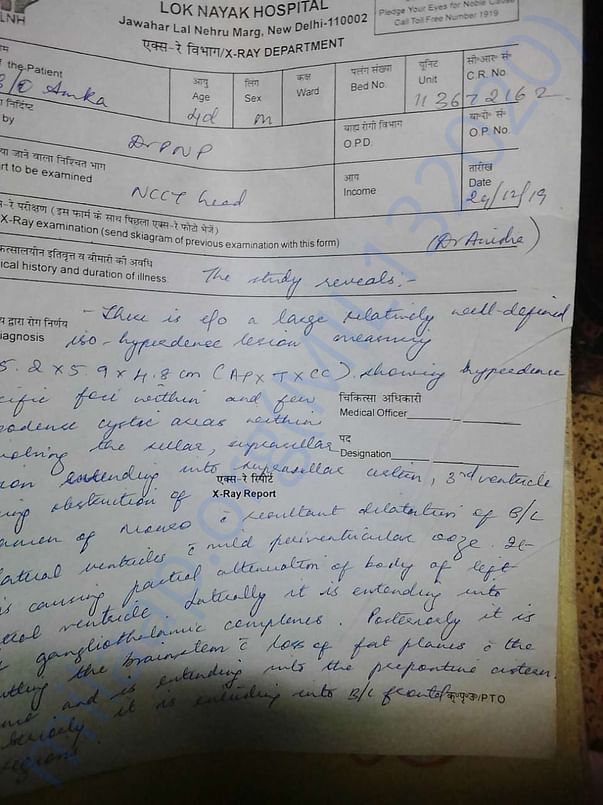 LNH
LOK NAYAK HOSPITAL
Jawahar Lal Nehru Marg, New Delhi-110002
Pledge Your Eyes for Noble Cause
Call Toll Free Number 1919
एक्स-रे विभाग/X-RAY DEPARTMENT
the Patient
आयु
Age
4d
लिंग
Sex
m
कक्ष
Ward
पलंग संख्या
Bed No.
यूनिट
Unit
सी०आर० सं०
C.R. No.
113672162
निर्दिष्ट
by
Dr PNP
बाह्य रोगी विभाग
O.P.D.
O.P. No.
जाने वाला निश्चित भाग
rt to be examined
NCCT head
आय
Income
तारीख
Date
29/12/19
-रे परीक्षण (इस फार्म के साथ पिछला एक्स-रे फोटो भेजें)
X-Ray examination (send skiagram of previous examination with this form)
ical history and duration of illness.
The study reveals:-
द्वारा रोग निर्णय
iagnosis
- There is e/o a large relatively well-defined
iso-hyperdense lesion measuring
5.2 x 5.9 x 4.8 cm (AP x T x CC). showing hyperdense
cific foci within and few
podense cystic areas within
चिकित्सा अधिकारी
Medical Officer
volving the sellar, suprasellar
पद
Designation
ion extending into suprasellar cistern, 3rd ventricle
एक्स-रे रिपोर्ट
X-Ray Report
ing obstruction of
amen of Monro c̄ resultant dilatation of B/L
lateral ventricles c̄ mild periventricular ooze. It
is causing partial attenuation of body of left
ventricle. Laterally it is extending into
gangliothalamic complexes. Posteriorly it is
the brainstem c̄ loss of fat planes c̄ the
and is extending into the prepontine cistern.
it is extending into B/L frontal
regions.
/PTO